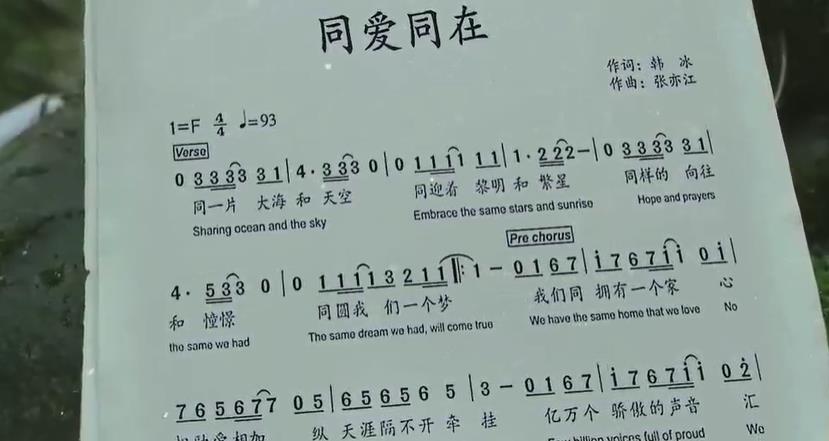 同爱同在
作词：韩 冰
作曲：张亦江
1=F 4/4 ♩=93
Verse
0 3 3 3 3 3 3 1 | 4 · 3 3 3 0 | 0 1 1 1 1 1 1 | 1 · 2 2 2 - | 0 3 3 3 3 3 1 |
同一片 大海 和 天空 同迎着 黎明 和 繁星 同样的 向往
Sharing ocean and the sky Embrace the same stars and sunrise Hope and prayers
Pre chorus
4 · 5 3 3 0 | 0 1 1 1 1 3 2 1 1 ‖: 1 - 0 1 6 7 | i 7 6 7 i i 0 i |
和 憧憬 同圆我 们一个梦 我们同 拥有一个家 心
the same we had The same dream we had, will come true We have the same home that we love No
7 6 5 6 7 7 0 5 | 6 5 6 5 6 5 | 3 - 0 1 6 7 | i 7 6 7 i i 0 2̇ |
纵 天涯隔不开 牵 挂 亿万个 骄傲的声音 汇
billion voices full of proud We